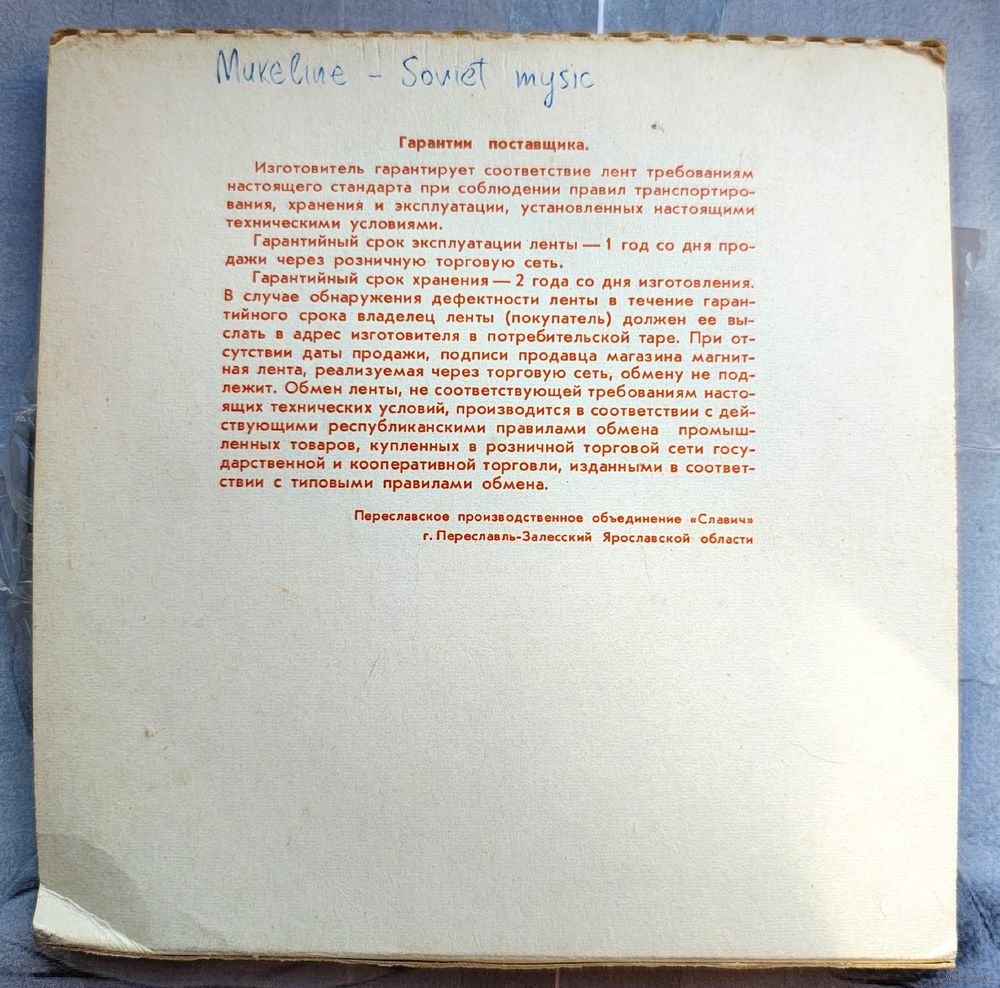 Mukeline – Soviet mysic
Гарантии поставщика.
Изготовитель гарантирует соответствие лент требованиям
настоящего стандарта при соблюдении правил транспортиро-
вания, хранения и эксплуатации, установленных настоящими
техническими условиями.
Гарантийный срок эксплуатации ленты — 1 год со дня про-
дажи через розничную торговую сеть.
Гарантийный срок хранения — 2 года со дня изготовления.
В случае обнаружения дефектности ленты в течение гаран-
тийного срока владелец ленты (покупатель) должен ее вы-
слать в адрес изготовителя в потребительской таре. При от-
сутствии даты продажи, подписи продавца магазина магнит-
ная лента, реализуемая через торговую сеть, обмену не под-
лежит. Обмен ленты, не соответствующей требованиям насто-
ящих технических условий, производится в соответствии с дей-
ствующими республиканскими правилами обмена промыш-
ленных товаров, купленных в розничной торговой сети госу-
дарственной и кооперативной торговли, изданными в соответ-
ствии с типовыми правилами обмена.
Переславское производственное объединение «Славич»
г. Переславль-Залесский Ярославской области